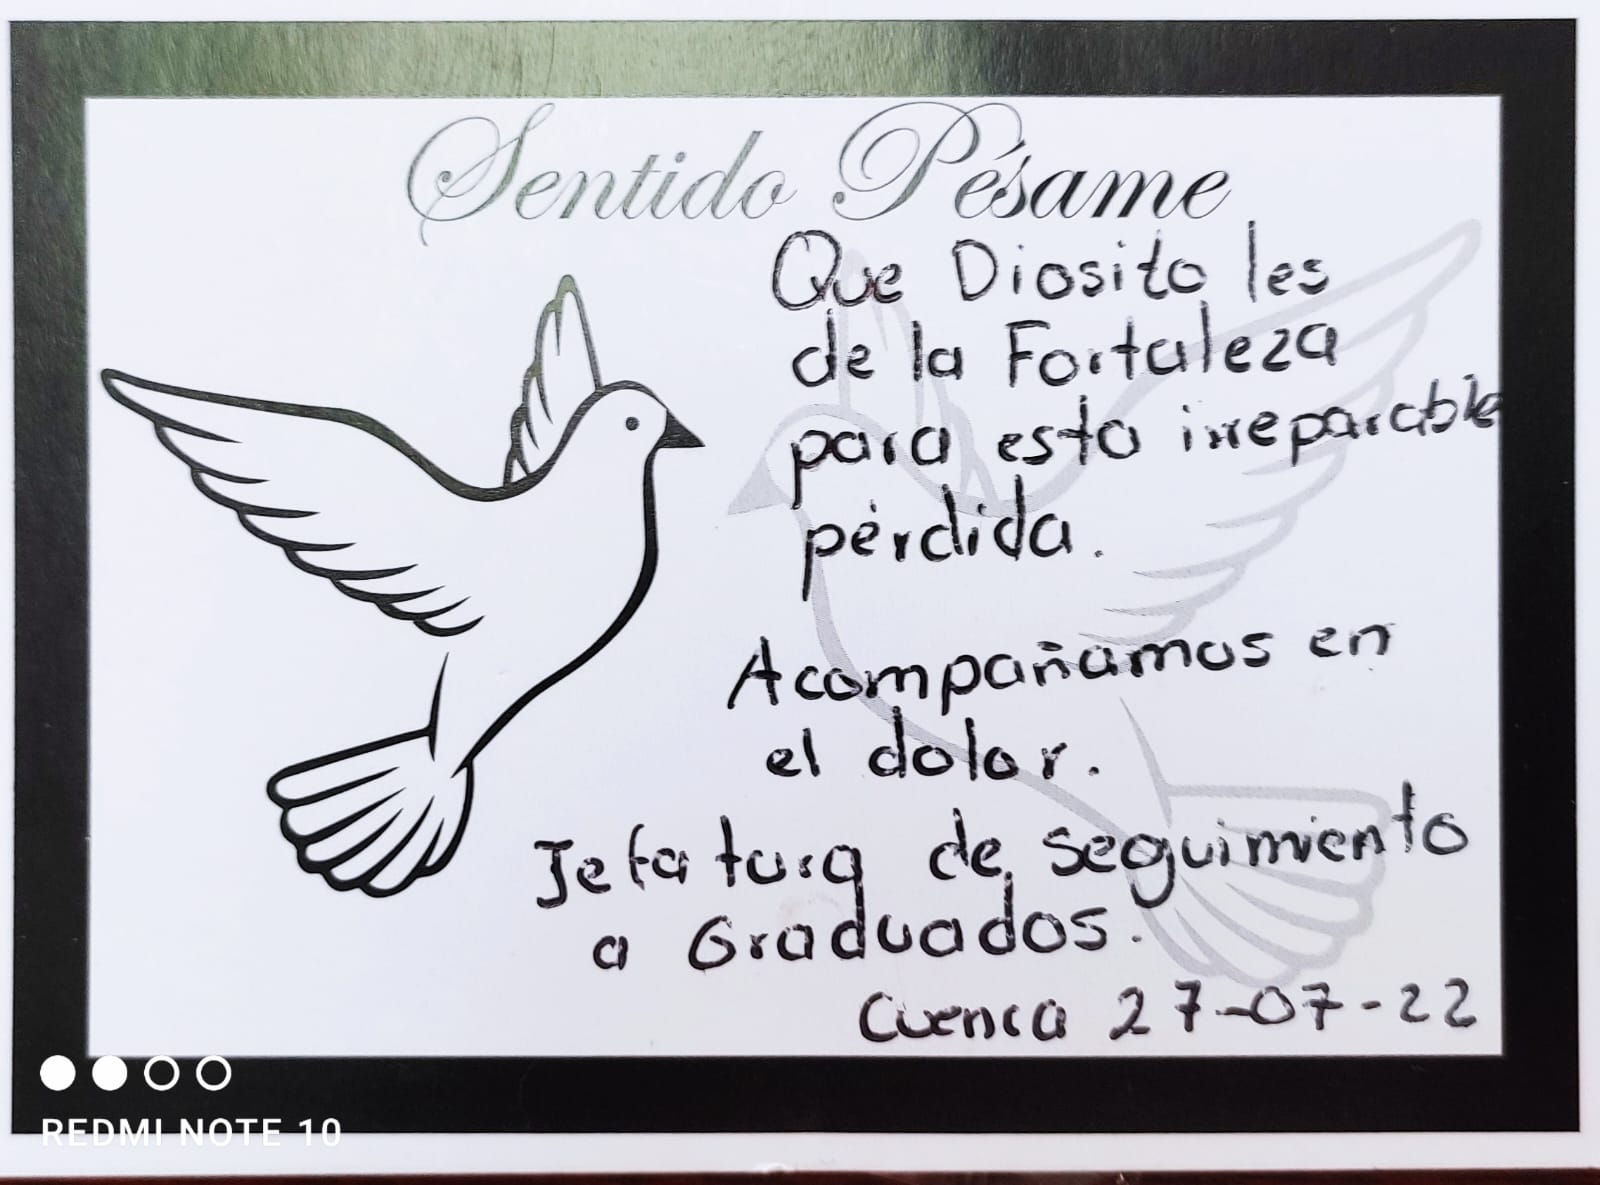 Sentido Pésame
Que Diosito les
de la Fortaleza
para esta irreparable
pérdida.
Acompañamos en
el dolor.
Jefatura de seguimiento
a Graduados.
Cuenca 27-07-22
REDMI NOTE 10